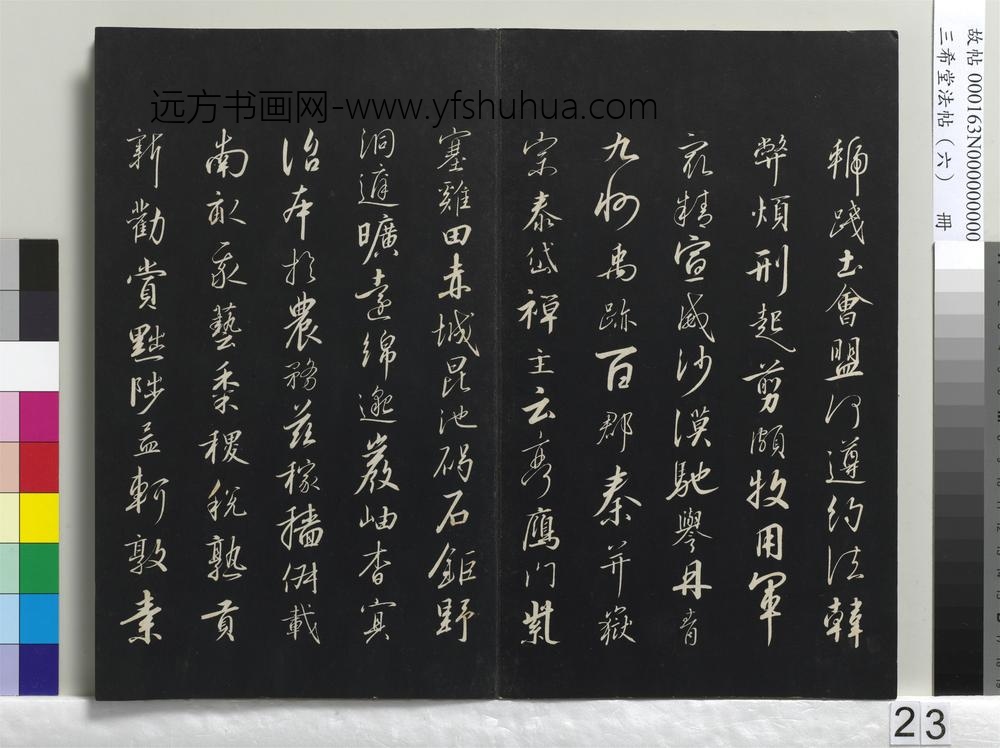 虢踐土會盟何遵約法韓
弊煩刑起剪頗牧用軍
最精宣威沙漠馳譽丹青
九州禹跡百郡秦并嶽
宗泰岱禪主云亭鴈門紫
塞雞田赤城昆池碣石鉅野
洞庭曠遠綿邈巖岫杳冥
治本於農務茲稼穡俶載
南畝我藝黍稷稅熟貢
新勸賞黜陟孟軻敦素
远方书画网-www.yfshuhua.com
故帖 000163N000000000
三希堂法帖（六） 冊
23